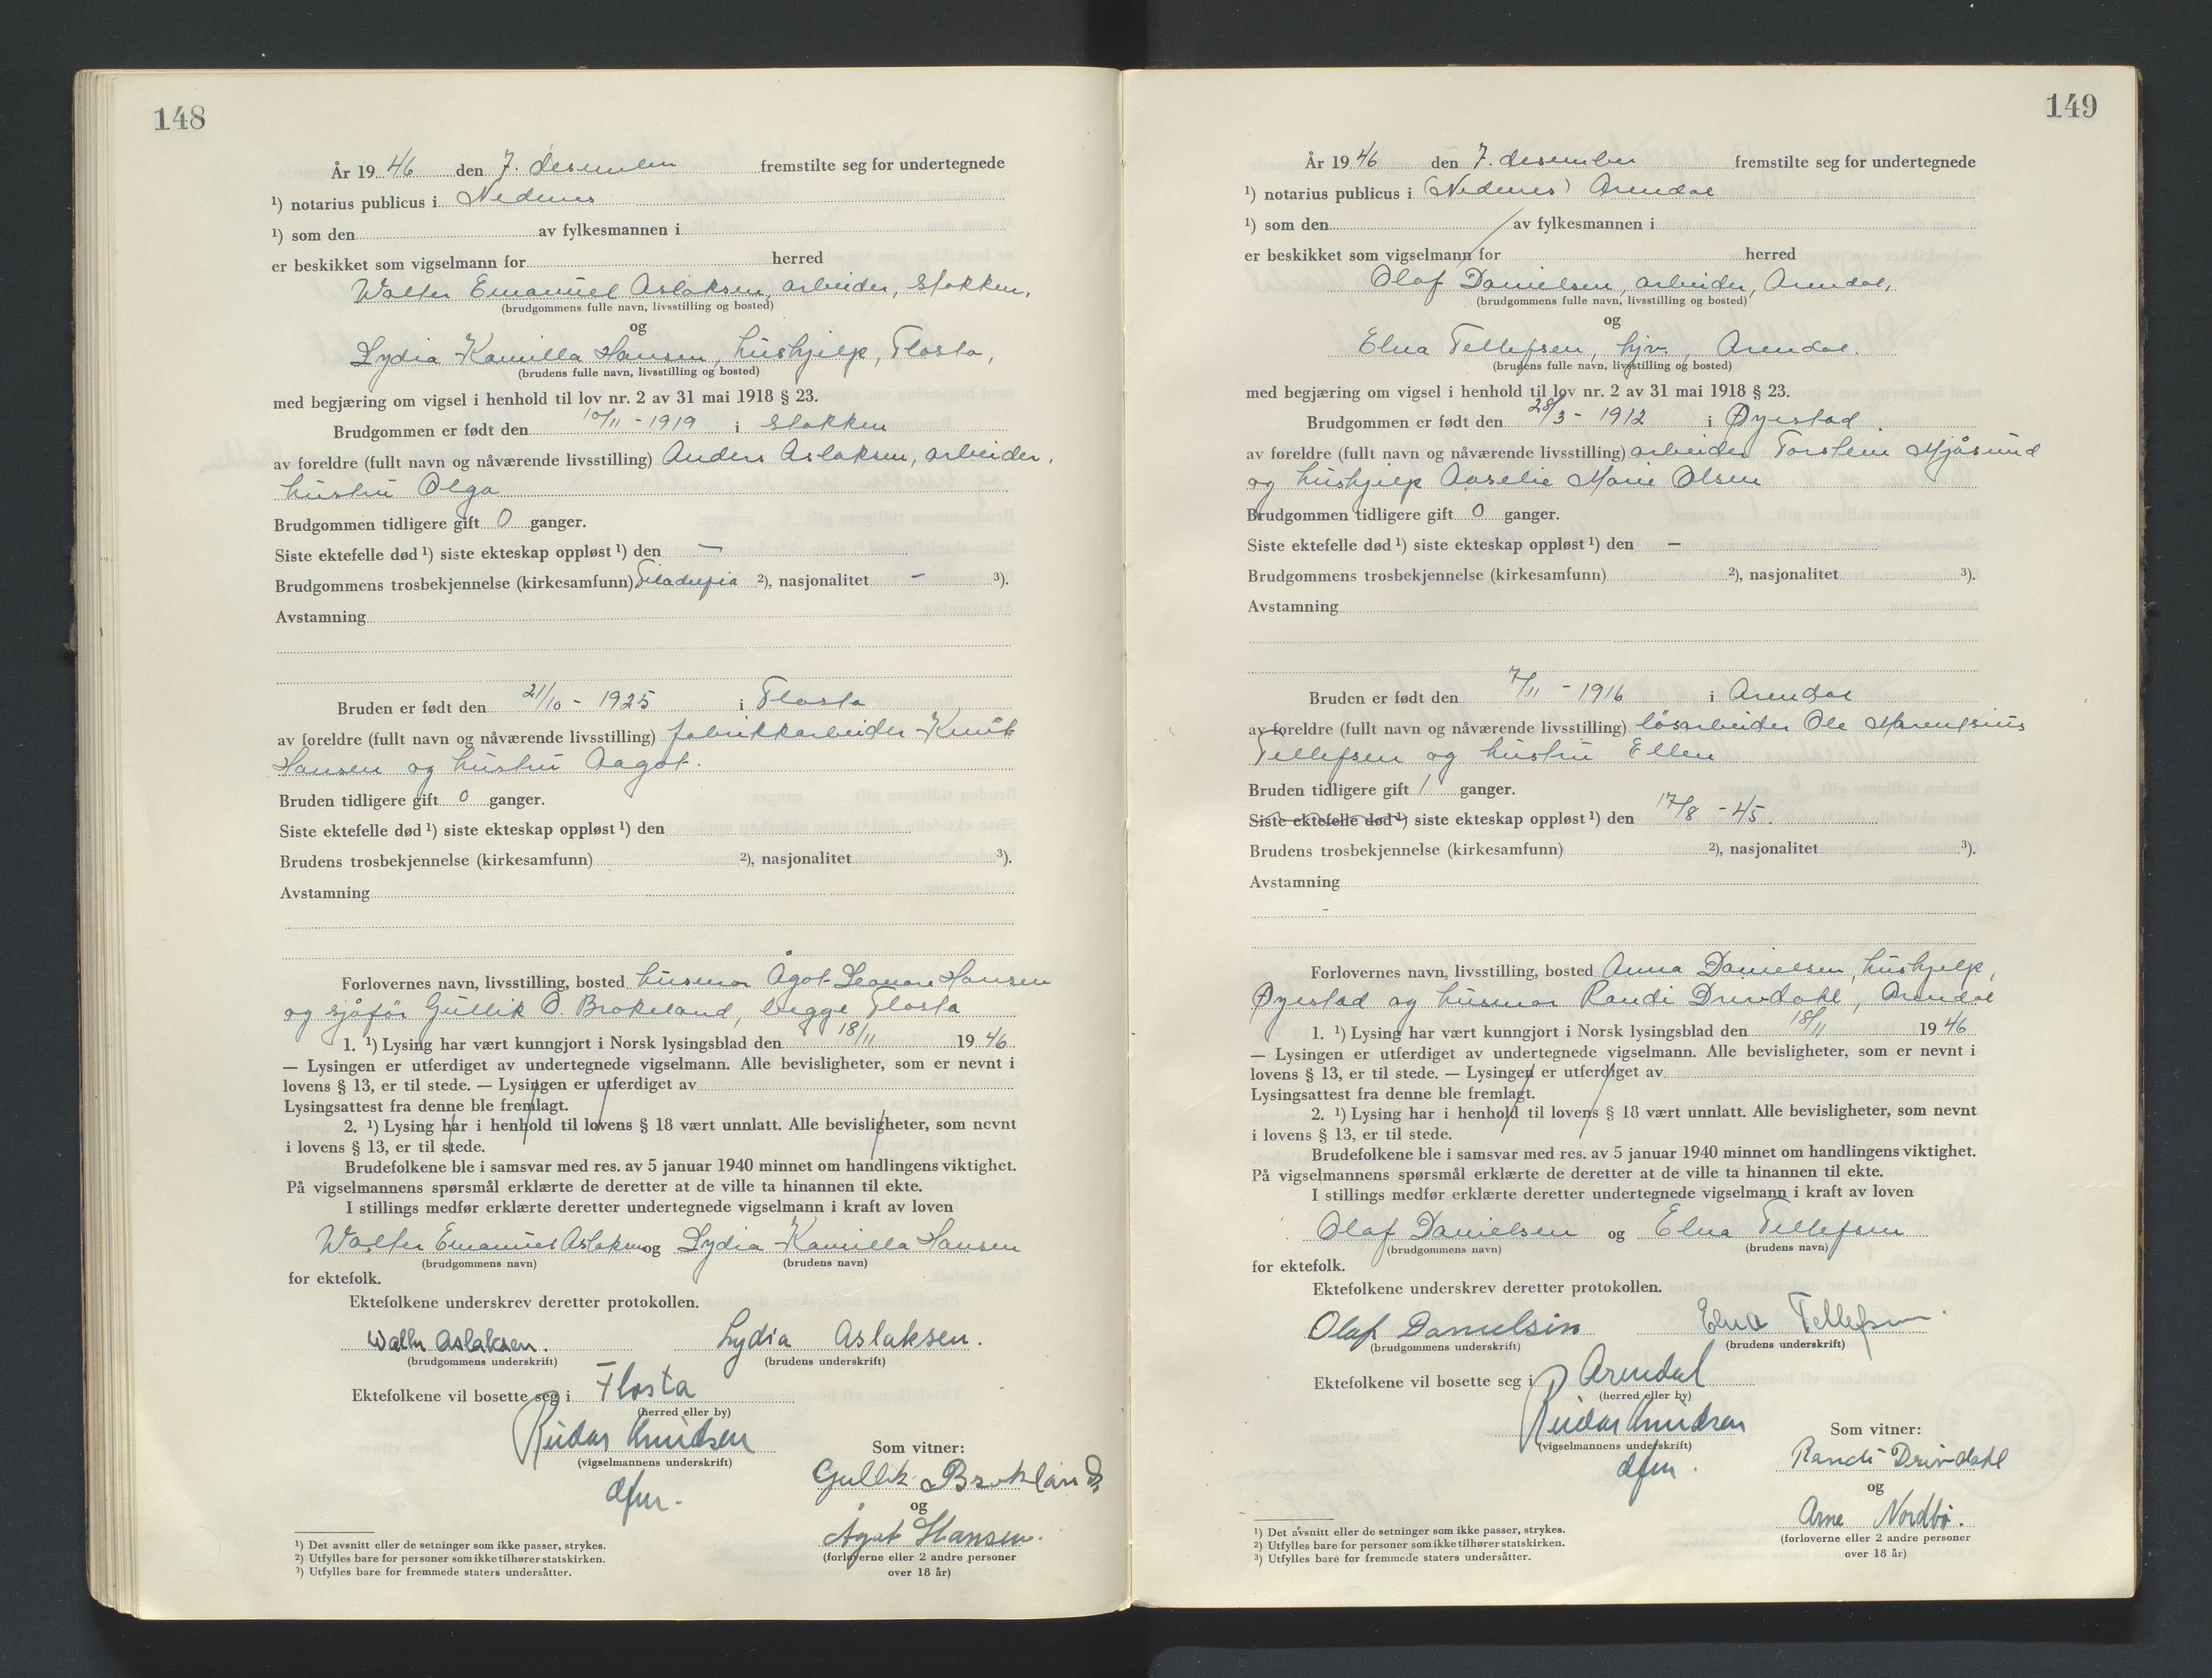 148
År 1946 den 7. desember fremstilte seg for undertegnede
¹) notarius publicus i Nedenes
¹) som den av fylkesmannen i
er beskikket som vigselmann for herred
Walter Emanuel Aslaksen, arbeider, Stokken,
(brudgommens fulle navn, livsstilling og bosted)
og
Lydia Kamilla Hansen, hushjelp, Flosta,
(brudens fulle navn, livsstilling og bosted)
med begjæring om vigsel i henhold til lov nr. 2 av 31 mai 1918 § 23.
Brudgommen er født den 10/11 - 1919 i Stokken
av foreldre (fullt navn og nåværende livsstilling) Anders Aslaksen, arbeider,
hustru Olga
Brudgommen tidligere gift 0 ganger.
Siste ektefelle død ¹) siste ekteskap oppløst ¹) den —
Brudgommens trosbekjennelse (kirkesamfunn) Filadelfia ²), nasjonalitet - ³).
Avstamning
Bruden er født den 21/10 - 1925 i Flosta
av foreldre (fullt navn og nåværende livsstilling) fabrikkarbeider Knut
Hansen og hustru Aagot.
Bruden tidligere gift 0 ganger.
Siste ektefelle død ¹) siste ekteskap oppløst ¹) den
Brudens trosbekjennelse (kirkesamfunn) ²), nasjonalitet ³).
Avstamning
Forlovernes navn, livsstilling, bosted husmor Ågot Leonore Hansen
og sjåfør Gullik O. Brokeland, begge Flosta
1. ¹) Lysing har vært kunngjort i Norsk lysingsblad den 18/11 1946
— Lysingen er utferdiget av undertegnede vigselmann. Alle bevisligheter, som er nevnt i
lovens § 13, er til stede. — Lysingen er utferdiget av
Lysingsattest fra denne ble fremlagt.
2. ¹) Lysing har i henhold til lovens § 18 vært unnlatt. Alle bevisligheter, som nevnt
i lovens § 13, er til stede.
Brudefolkene ble i samsvar med res. av 5 januar 1940 minnet om handlingens viktighet.
På vigselmannens spørsmål erklærte de deretter at de ville ta hinannen til ekte.
I stillings medfør erklærte deretter undertegnede vigselmann i kraft av loven
Walter Emanuel Aslaksen og Lydia Kamilla Hansen
(brudgommens navn) (brudens navn)
for ektefolk.
Ektefolkene underskrev deretter protokollen.
Walter Aslaksen. Lydia Aslaksen.
(brudgommens underskrift) (brudens underskrift)
Ektefolkene vil bosette seg i Flosta
(herred eller by)
Reidar Knudsen
(vigselmannens underskrift)
dfm.
Som vitner:
Gullik Brokland
og
Ågot Hansen.
(forloverne eller 2 andre personer
over 18 år)
¹) Det avsnitt eller de setninger som ikke passer, strykes.
²) Utfylles bare for personer som ikke tilhører statskirken.
³) Utfylles bare for fremmede staters undersåtter.
149
År 1946 den 7. desember fremstilte seg for undertegnede
¹) notarius publicus i (Nedenes) Arendal
¹) som den av fylkesmannen i
er beskikket som vigselmann for herred
Olaf Danielsen, arbeider, Arendal,
(brudgommens fulle navn, livsstilling og bosted)
og
Elna Tellefsen, hjv., Arendal.
(brudens fulle navn, livsstilling og bosted)
med begjæring om vigsel i henhold til lov nr. 2 av 31 mai 1918 § 23.
Brudgommen er født den 28/3 - 1912 i Øyestad.
av foreldre (fullt navn og nåværende livsstilling) arbeider Torstein Mjåsund
og hushjelp Aaselie Marie Olsen
Brudgommen tidligere gift 0 ganger.
Siste ektefelle død ¹) siste ekteskap oppløst ¹) den —
Brudgommens trosbekjennelse (kirkesamfunn) ²), nasjonalitet ³).
Avstamning
Bruden er født den 7/11 - 1916 i Arendal
av foreldre (fullt navn og nåværende livsstilling) løsarbeider Ole
Tellefsen og hustru Ellen
Bruden tidligere gift 1 ganger.
Siste ektefelle død ¹) siste ekteskap oppløst ¹) den 17/8 - 45.
Brudens trosbekjennelse (kirkesamfunn) ²), nasjonalitet ³).
Avstamning
Forlovernes navn, livsstilling, bosted Anna Danielsen, hushjelp,
Øyestad og husmor Randi Drivdahl, Arendal
1. ¹) Lysing har vært kunngjort i Norsk lysingsblad den 18/11 1946
— Lysingen er utferdiget av undertegnede vigselmann. Alle bevisligheter, som er nevnt i
lovens § 13, er til stede. — Lysingen er utferdiget av
Lysingsattest fra denne ble fremlagt.
2. ¹) Lysing har i henhold til lovens § 18 vært unnlatt. Alle bevisligheter, som nevnt
i lovens § 13, er til stede.
Brudefolkene ble i samsvar med res. av 5 januar 1940 minnet om handlingens viktighet.
På vigselmannens spørsmål erklærte de deretter at de ville ta hinannen til ekte.
I stillings medfør erklærte deretter undertegnede vigselmann i kraft av loven
Olaf Danielsen og Elna Tellefsen
(brudgommens navn) (brudens navn)
for ektefolk.
Ektefolkene underskrev deretter protokollen.
Olaf Danielsen Elna Tellefsen
(brudgommens underskrift) (brudens underskrift)
Ektefolkene vil bosette seg i Arendal
(herred eller by)
Reidar Knudsen
(vigselmannens underskrift)
dfm.
Som vitner:
Randi Drivdahl
og
Arne Nordbø.
(forloverne eller 2 andre personer
over 18 år)
¹) Det avsnitt eller de setninger som ikke passer, strykes.
²) Utfylles bare for personer som ikke tilhører statskirken.
³) Utfylles bare for fremmede staters undersåtter.